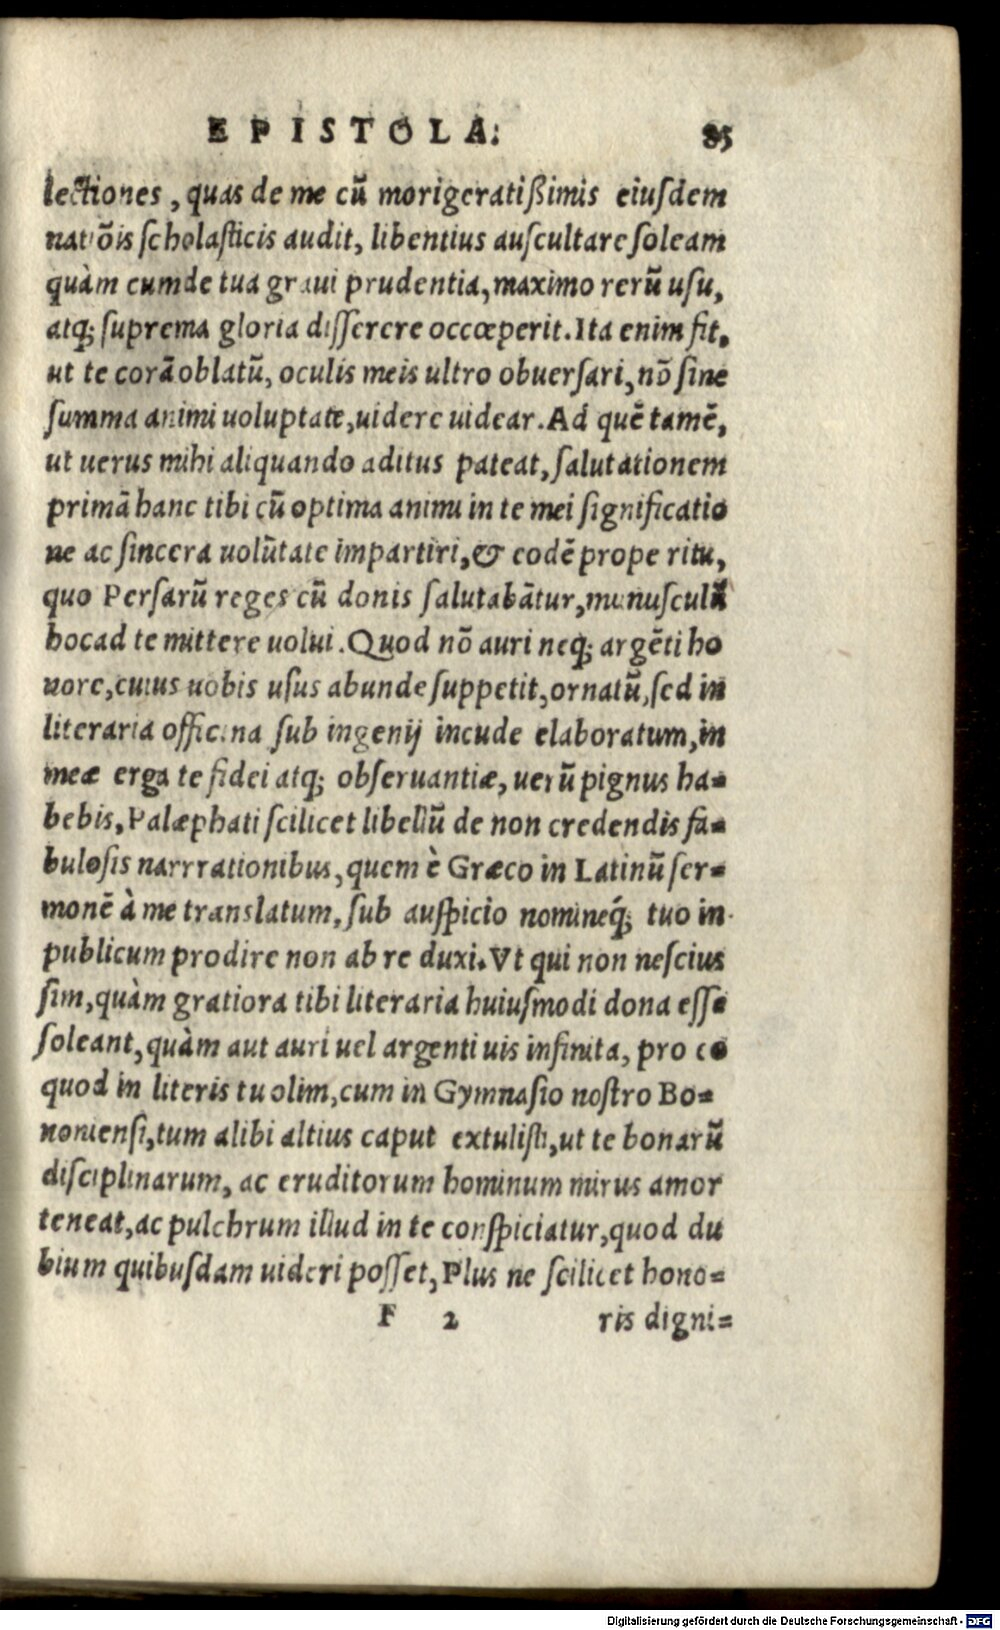 EPISTOLA. 85
lectiones, quas de me cũ morigeratißimis eiuſdem
natiõis ſcholaſticis audit, libentius auſcultare ſoleam
quàm cum de tua graui prudentia, maximo rerũ uſu,
atq; ſuprema gloria diſſerere occœperit. Ita enim fit,
ut te corã oblatũ, oculis meis ultro obuerſari, nõ ſine
ſumma animi uoluptate, uidere uidear. Ad quẽ tamẽ,
ut uerus mihi aliquando aditus pateat, ſalutationem
primã hanc tibi cũ optima animi in te mei ſignificatio
ne ac ſincera uolũtate impartiri, & eodẽ prope ritu,
quo Perſarũ reges cũ donis ſalutabãtur, munuſculũ
hoc ad te mittere uolui. Quod nõ auri neq; argẽti ho
nore, cuius uobis uſus abunde ſuppetit, ornatũ, ſed in
literaria officina ſub ingenij incude elaboratum, in
meæ erga te fidei atq; obſeruantiæ, uerũ pignus ha=
bebis, Palæphati ſcilicet libellũ de non credendis fa=
buloſis narrrationibus, quem è Græco in Latinũ ſer=
monẽ à me translatum, ſub auſpicio nomineq́; tuo in
publicum prodire non ab re duxi. Vt qui non neſcius
ſim, quàm gratiora tibi literaria huiuſmodi dona eſſe
ſoleant, quàm aut auri uel argenti uis infinita, pro eo
quod in literis tu olim, cum in Gymnaſio noſtro Bo=
nonienſi, tum alibi altius caput extuliſti, ut te bonarũ
diſciplinarum, ac eruditorum hominum mirus amor
teneat, ac pulchrum illud in te conſpiciatur, quod du
bium quibuſdam uideri poſſet, Plus ne ſcilicet hono=
F 2 ris digni=
Digitalisierung gefördert durch die Deutsche Forschungsgemeinschaft - DFG